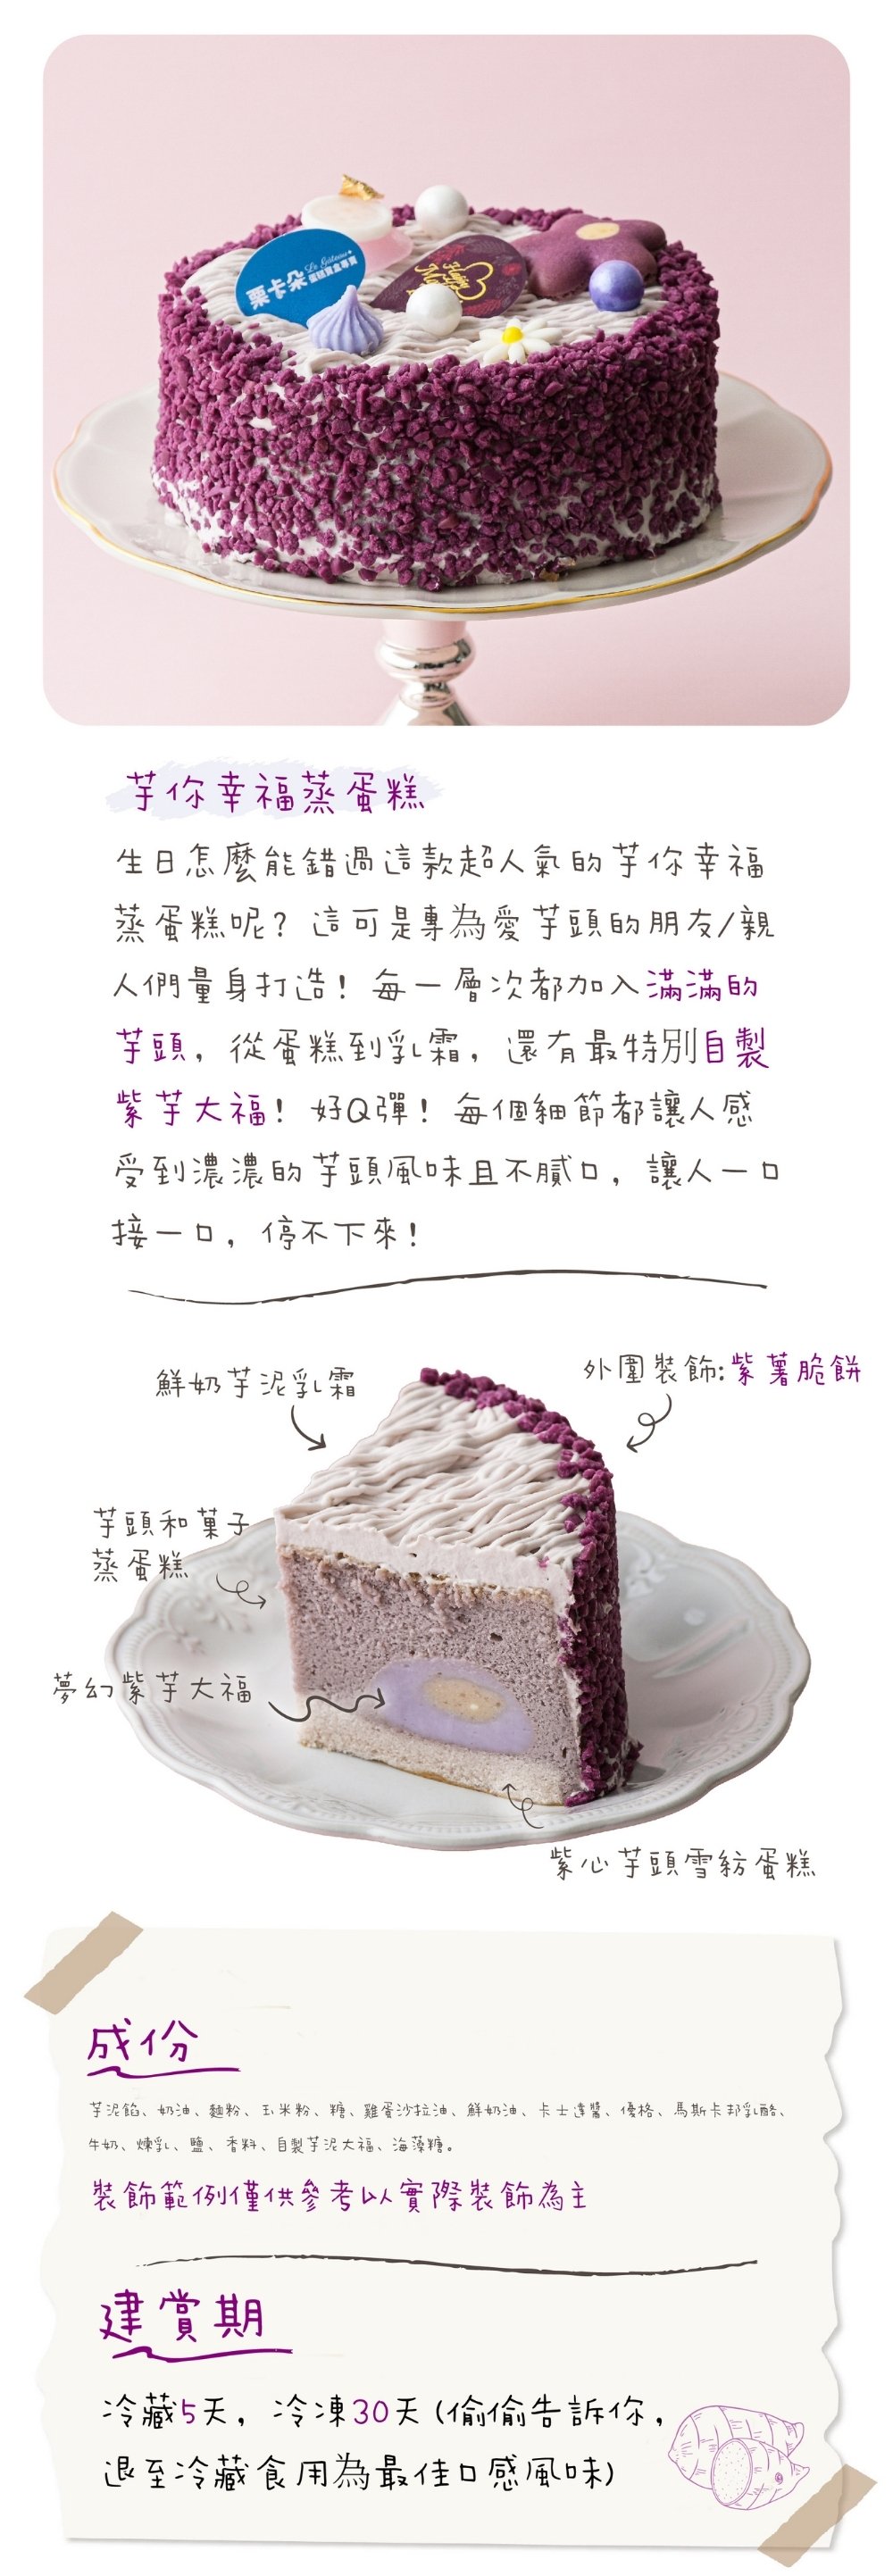 Le Gâteau+
栗卡朵
蛋糕寶盒專賣
Happy
芋你幸福蒸蛋糕
生日怎麼能錯過這款超人氣的芋你幸福
蒸蛋糕呢？這可是專為愛芋頭的朋友/親
人們量身打造！每一層次都加入滿滿的
芋頭，從蛋糕到乳霜，還有最特別自製
紫芋大福！好Q彈！每個細節都讓人感
受到濃濃的芋頭風味且不膩口，讓人一口
接一口，停不下來！
鮮奶芋泥乳霜
外圍裝飾:紫薯脆餅
芋頭和菓子
蒸蛋糕
夢幻紫芋大福
紫心芋頭雪紡蛋糕
成份
芋泥餡、奶油、麵粉、玉米粉、糖、雞蛋沙拉油、鮮奶油、卡士達醬、優格、馬斯卡邦乳酪、
牛奶、煉乳、鹽、香料、自製芋泥大福、海藻糖。
裝飾範例僅供參考以實際裝飾為主
建賞期
冷藏5天，冷凍30天（偷偷告訴你，
退至冷藏食用為最佳口感風味）